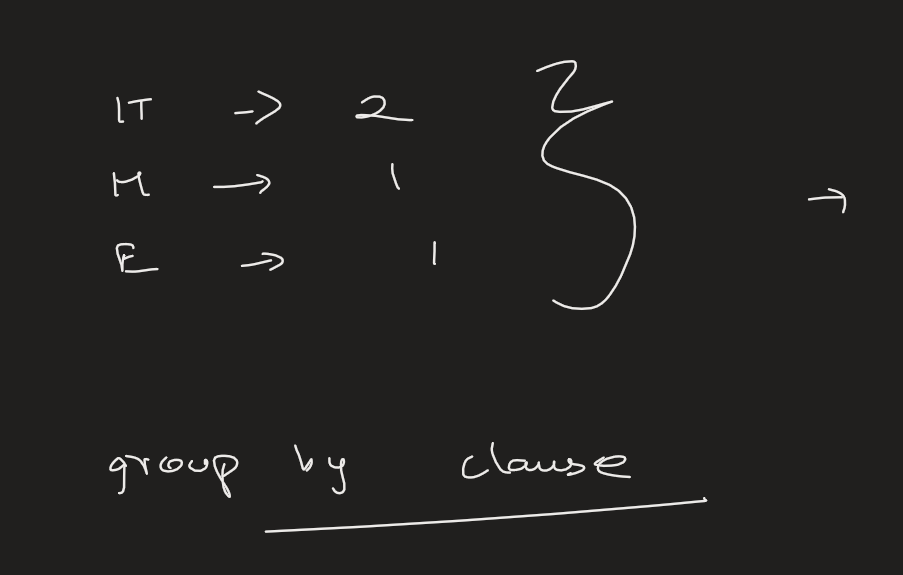 IT → 2
M → 1
E → 1
→
group by clause